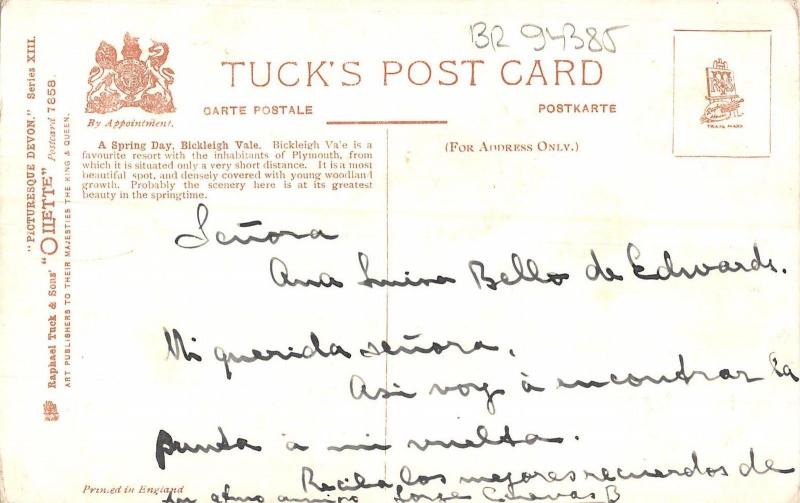 BR 94385
TUCK'S POST CARD
CARTE POSTALE
POSTKARTE
By Appointment.
(FOR ADDRESS ONLY.)
TRADE MARK
A Spring Day, Bickleigh Vale. Bickleigh Vale is a
favourite resort with the inhabitants of Plymouth, from
which it is situated only a very short distance. It is a most
beautiful spot, and densely covered with young woodland
growth. Probably the scenery here is at its greatest
beauty in the springtime.
"PICTURESQUE DEVON." Series XIII.
Raphael Tuck & Sons' "OILETTE" Postcard 7858.
ART PUBLISHERS TO THEIR MAJESTIES THE KING & QUEEN.
Señora
Ana Luisa Bello de Edwards.
Mi querida señora,
Asi voy à encontrar la
punta à mi vuelta.
Reciba los mejores recuerdos de
su afmo amigo Jorge Cuevas B
Printed in England